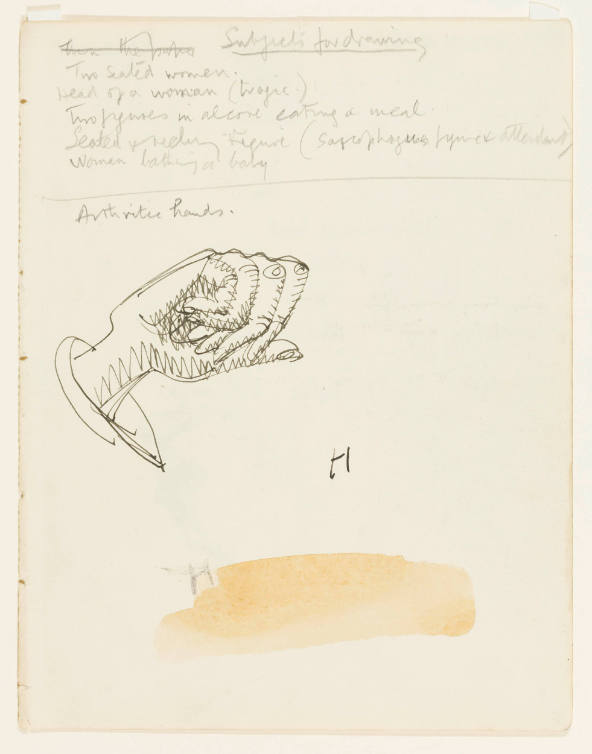 Subjects for drawing
Two seated women.
Head of a woman (tragic)
Two figures in alcove eating a meal.
Seated & reclining Figure (Sarcophagus figure & attendant)
Women bathing a baby
Arthritic hands.
H
H